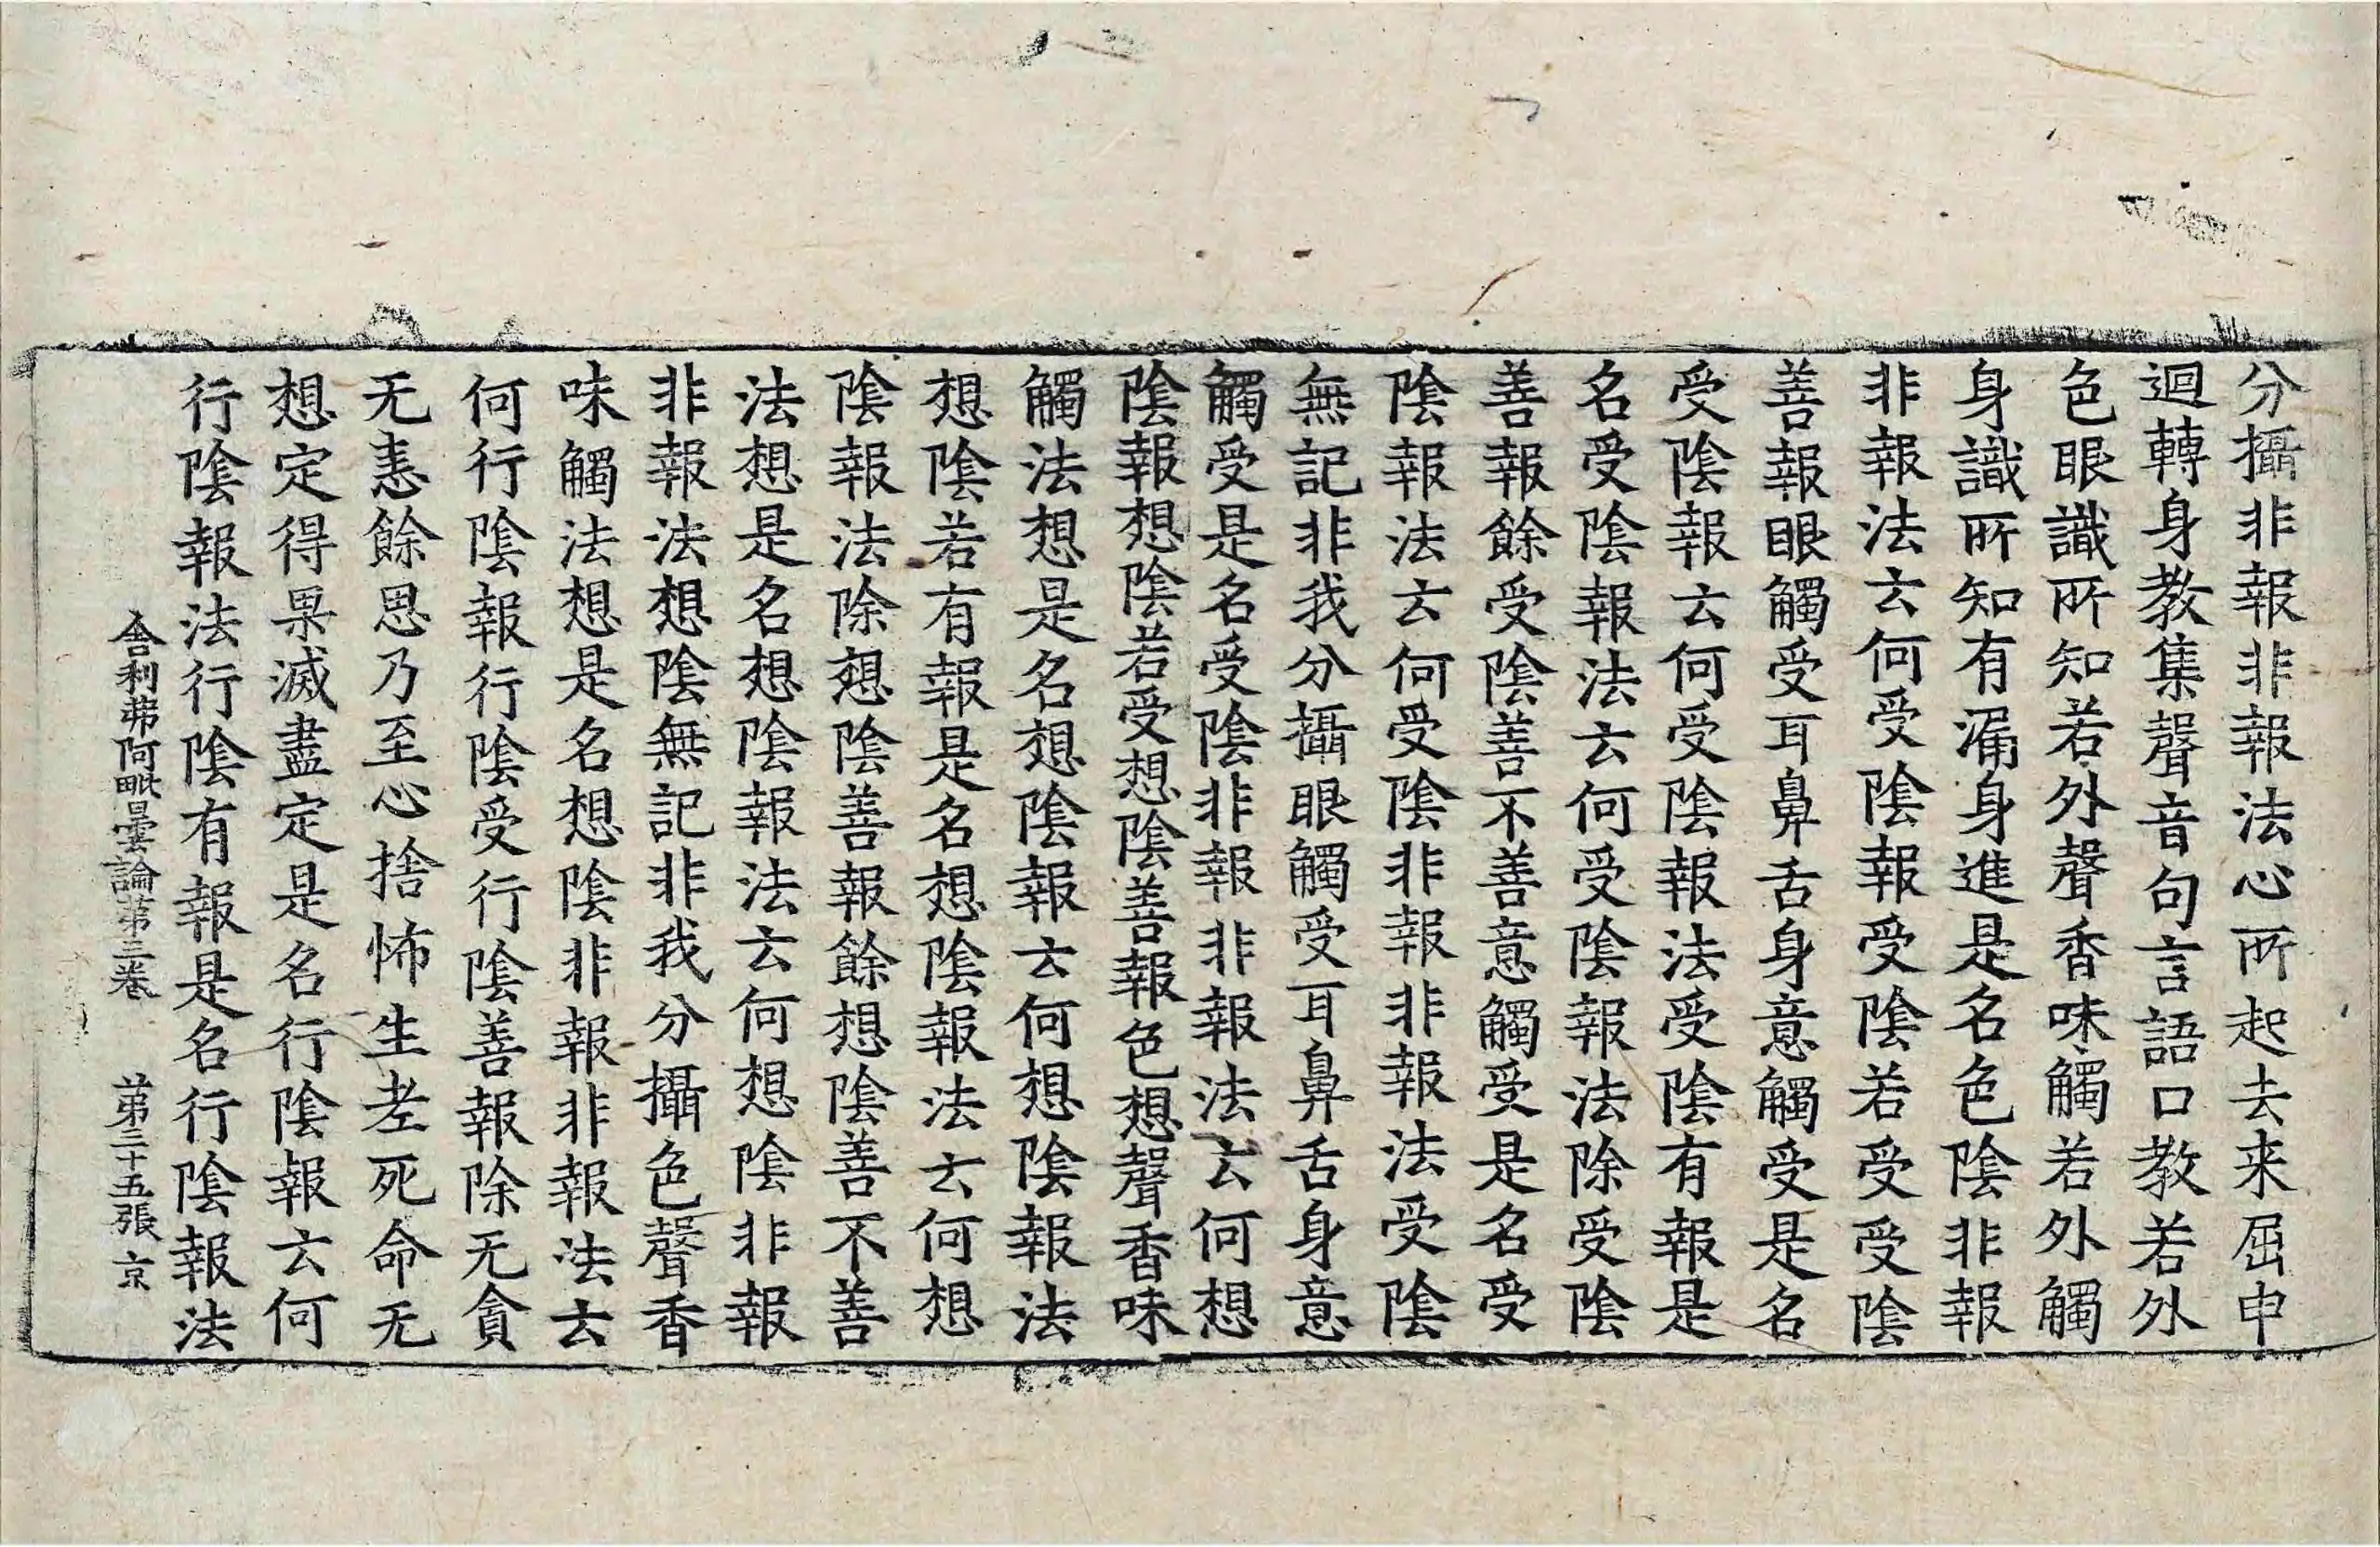 分攝非報非報法心所起去来屈申
迴轉身教集聲音句言語口教若外
色眼識所知若外聲香味觸若外觸
身識所知有漏身進是名色陰非報
非報法云何受陰報受陰若受受陰
善報眼觸受耳鼻舌身意觸受是名
受陰報云何受陰報法受陰有報是
名受陰報法云何受陰報法除受陰
善報餘受陰善不善意觸受是名受
陰報法云何受陰非報非報法受陰
無記非我分攝眼觸受耳鼻舌身意
觸受是名受陰非報非報法云何想
陰報想陰若受想陰善報色想聲香味
觸法想是名想陰報云何想陰報法
想陰若有報是名想陰報法云何想
陰報法除想陰善報餘想陰善不善
法想是名想陰報法云何想陰非報
非報法想陰無記非我分攝色聲香
味觸法想是名想陰非報非報法云
何行陰報行陰受行陰善報除无貪
无恚餘思乃至心捨怖生老死命无
想定得果滅盡定是名行陰報云何
行陰報法行陰有報是名行陰報法
舍利弗阿毗曇論第三卷 第三十五張 京